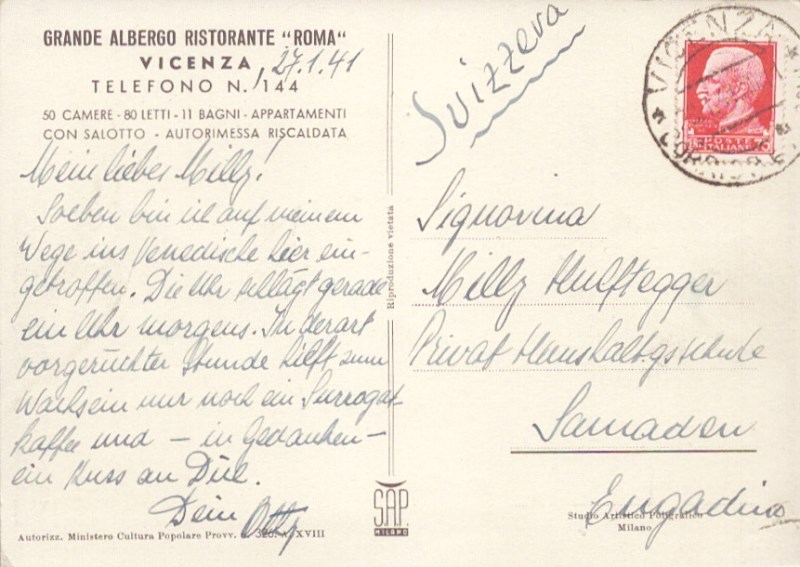 GRANDE ALBERGO RISTORANTE "ROMA"
VICENZA, 27.1.41
TELEFONO N. 144
50 CAMERE - 80 LETTI - 11 BAGNI - APPARTAMENTI
CON SALOTTO - AUTORIMESSA RISCALDATA
Mein liebes Milly!
Soeben bin ich auf meinem
Wege ins Venedische hier ein-
getroffen. Die Uhr schlägt gerade
ein Uhr morgens. In derart
vorgerückter Stunde hilft zum
Wachsein nur noch ein Surrogat-
kaffee und – in Gedanken –
ein Kuss an Dich.
Dein Otty
Autorizz. Ministero Cultura Popolare Provv. . 326. A. XVIII
Riproduzione vietata
S.A.P.
MILANO
Svizzera
VICENZA
POSTE
ITALIANE
Signorina
Milly Hulftegger
Privat Haushaltgsschule
Samaden
Engadina
Studio Artistico Poligrafico
Milano